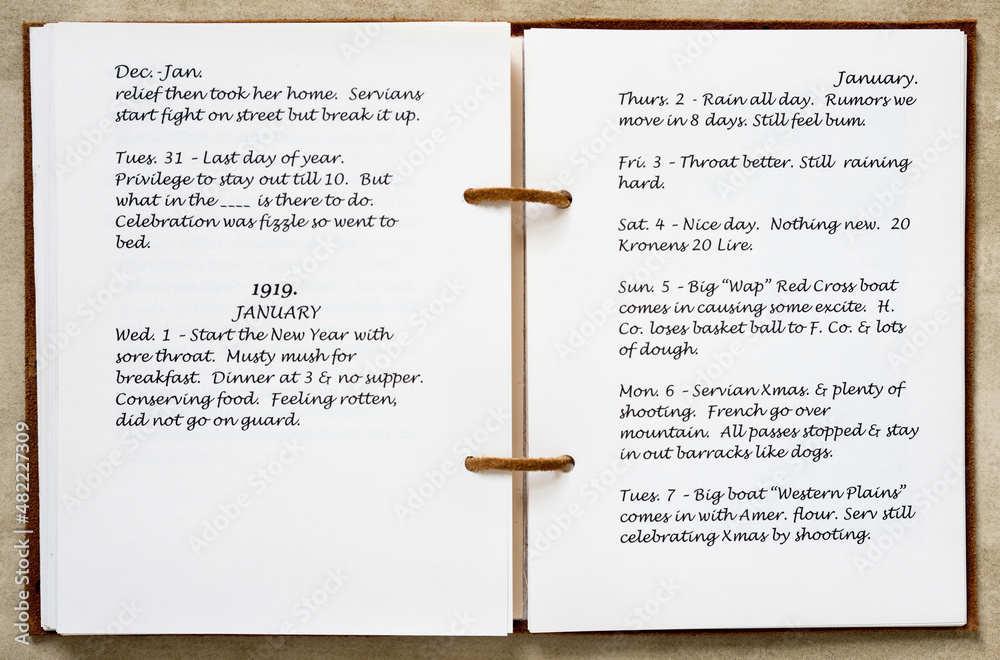 Dec.-Jan.
relief then took her home. Servians
start fight on street but break it up.
Tues. 31 - Last day of year.
Privilege to stay out till 10. But
what in the ____ is there to do.
Celebration was fizzle so went to
bed.
1919.
JANUARY
Wed. 1 - Start the New Year with
sore throat. Musty mush for
breakfast. Dinner at 3 & no supper.
Conserving food. Feeling rotten,
did not go on guard.
January.
Thurs. 2 - Rain all day. Rumors we
move in 8 days. Still feel bum.
Fri. 3 - Throat better. Still raining
hard.
Sat. 4 - Nice day. Nothing new. 20
Kronens 20 Lire.
Sun. 5 - Big “Wap” Red Cross boat
comes in causing some excite. H.
Co. loses basket ball to F. Co. & lots
of dough.
Mon. 6 - Servian Xmas. & plenty of
shooting. French go over
mountain. All passes stopped & stay
in out barracks like dogs.
Tues. 7 - Big boat “Western Plains”
comes in with Amer. flour. Serv still
celebrating Xmas by shooting.
Adobe Stock | #482227309